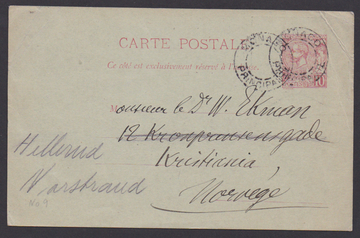 CARTE POSTALE
Ce côté est exclusivement réservé à l'adresse.
MONACO
PRINCIPAUTÉ
Monsieur le Dr W. Ekman
12 Kronprinsensgade
Kristiania,
Norvège
Hellerud
No 9